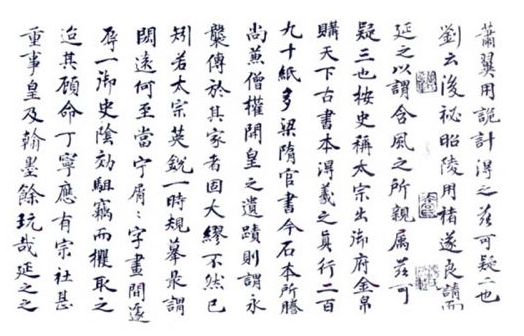 蕭翼用詭計得之茲可疑二也
劉云後祕昭陵用褚遂良請而
延之以謂含風之所親属茲可
疑三也按史稱太宗出御府金帛
購天下古書本得羲之真行二百
九十紙多梁隋官書今石本所
尚兼僧權開皇之遺蹟則謂永
襲傳於其家者固大繆不然已
矧若太宗英銳一時規摹最謂
闊遠何至當宁屑〻字畫間遂
辱一御史陰効駔竊而攫取之
迨其顧命丁寧應有宗社甚
重事皇及翰墨餘玩哉延之之